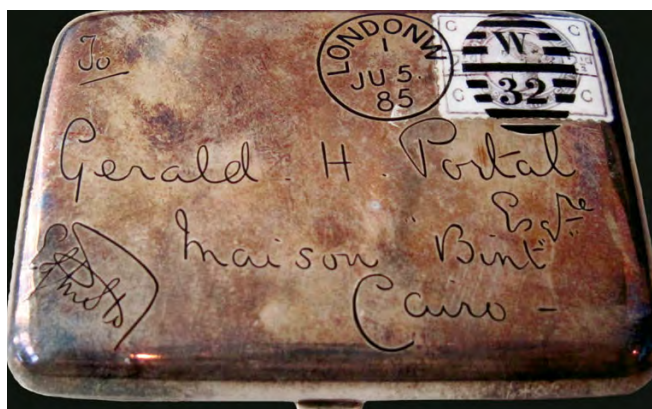 To
LONDON W
1
JU 5.
85
C C
W.
32
C C
Gerald . H . Portal
Esqre
Maison "Bint"
Cairo -